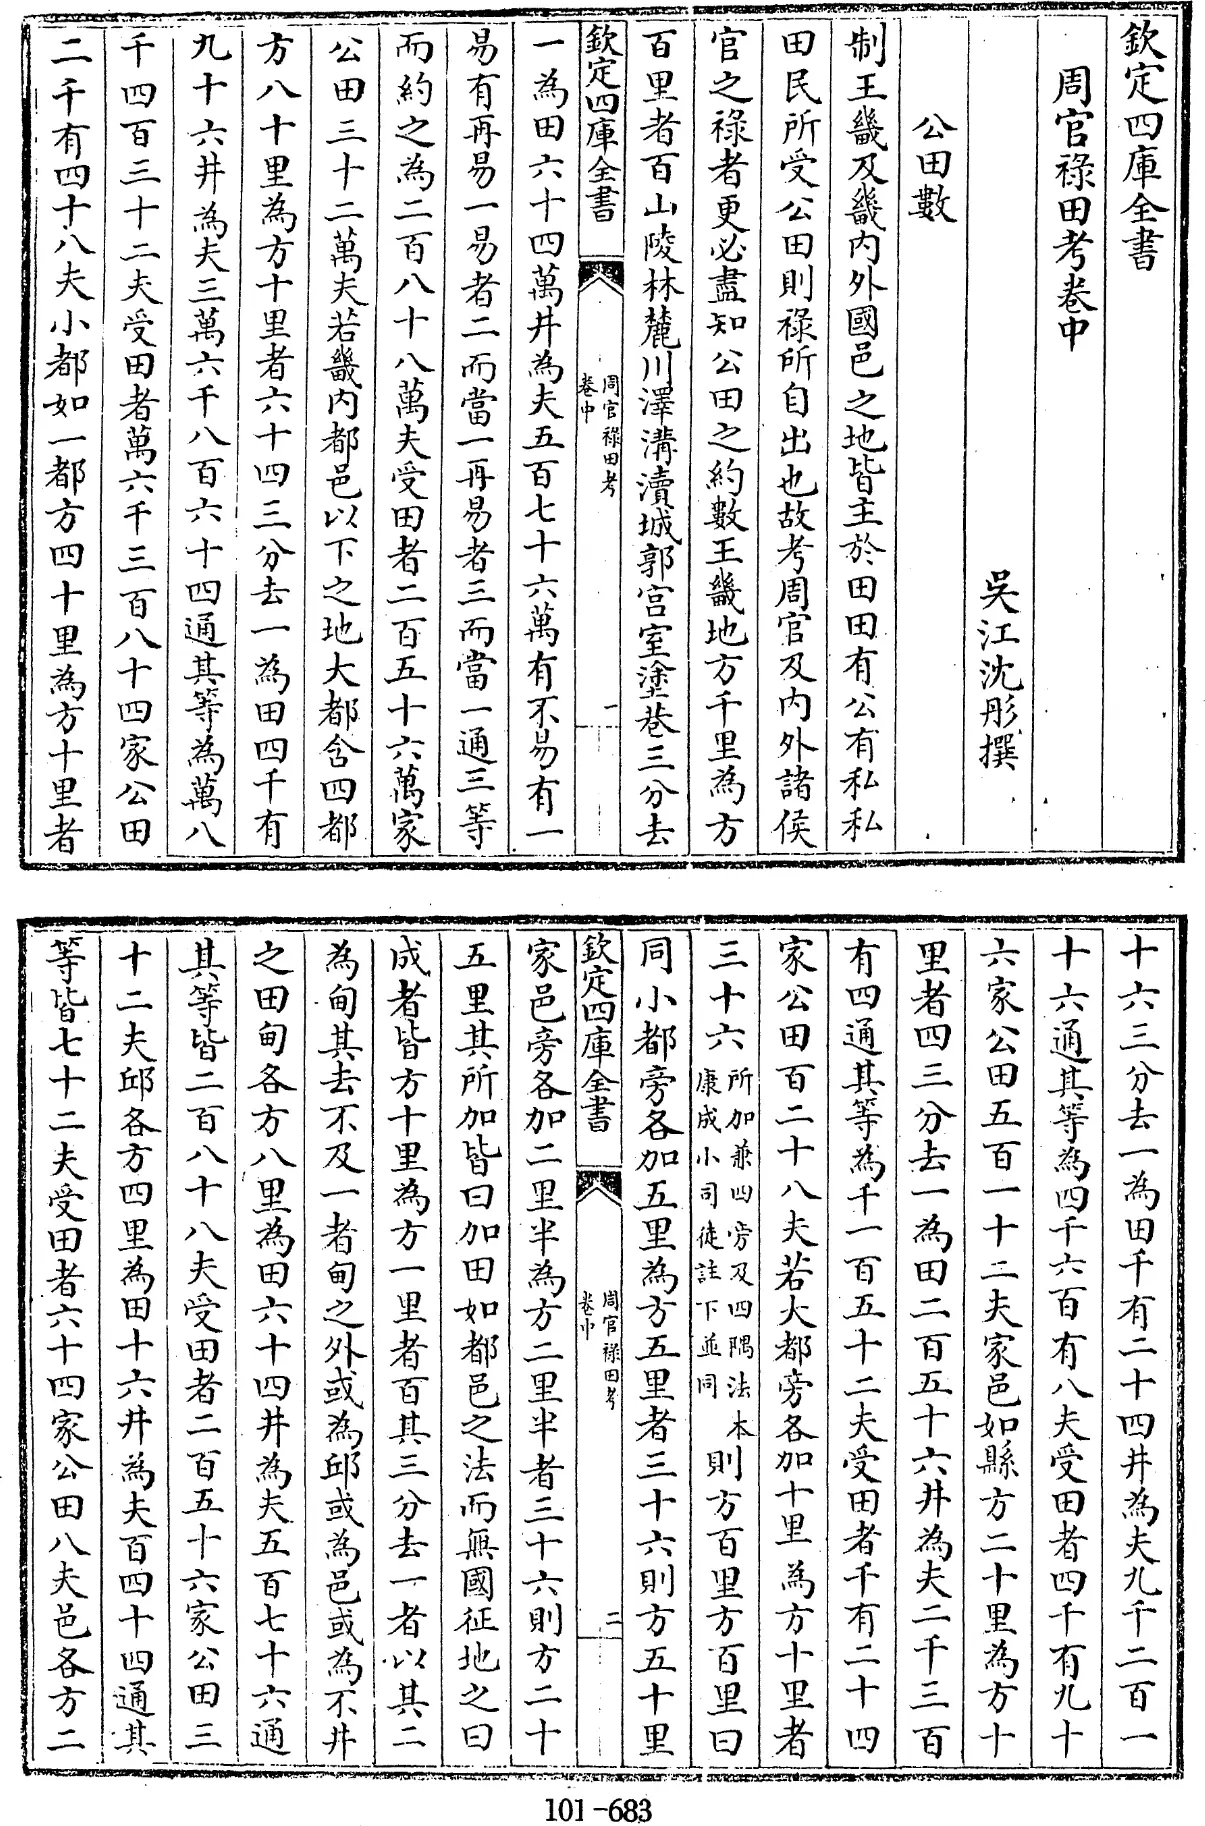 欽定四庫全書
周官祿田考卷中
吳江沈彤撰
公田數
制王畿及畿內外國邑之地皆主於田田有公有私私
田民所受公田則祿所自出也故考周官及內外諸侯
官之祿者更必盡知公田之約數王畿地方千里為方
百里者百山陵林麓川澤溝瀆城郭宫室塗巷三分去
欽定四庫全書
周官祿田考
卷中
一
一為田六十四萬井為夫五百七十六萬有不易有一
易有再易一易者二而當一再易者三而當一通三等
而約之為二百八十八萬夫受田者二百五十六萬家
公田三十二萬夫若畿内都邑以下之地大都含四都
方八十里為方十里者六十四三分去一為田四千有
九十六井為夫三萬六千八百六十四通其等為萬八
千四百三十二夫受田者萬六千三百八十四家公田
二千有四十八夫小都如一都方四十里為方十里者
十六三分去一為田千有二十四井為夫九千二百一
十六通其等為四千六百有八夫受田者四千有九十
六家公田五百一十二夫家邑如縣方二十里為方十
里者四三分去一為田二百五十六井為夫二千三百
有四通其等為千一百五十二夫受田者千有二十四
家公田百二十八夫若大都旁各加十里為方十里者
三十六所加兼四旁及四隅法本康成小司徒註下並同則方百里方百里曰
同小都旁各加五里為方五里者三十六則方五十里
欽定四庫全書
周官祿田考
卷中
二
家邑旁各加二里半為方二里半者三十六則方二十
五里其所加皆曰加田如都邑之法而無國征地之曰
成者皆方十里為方一里者百其三分去一者以其二
為甸其去不及一者甸之外或為邱或為邑或為不井
之田甸各方八里為田六十四井為夫五百七十六通
其等皆二百八十八夫受田者二百五十六家公田三
十二夫邱各方四里為田十六井為夫百四十四通其
等皆七十二夫受田者六十四家公田八夫邑各方二
101-683